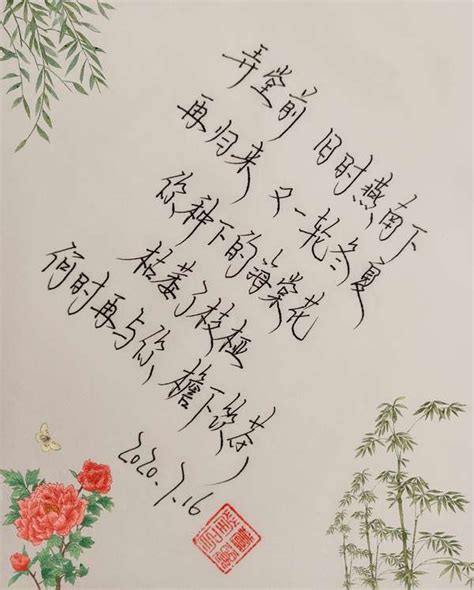 弄堂前 旧时燕南下
再归来 又一轮冬夏
你种下的海棠花
枯萎了枝桠
何时再与你、檐下煮茶
2020.7.16